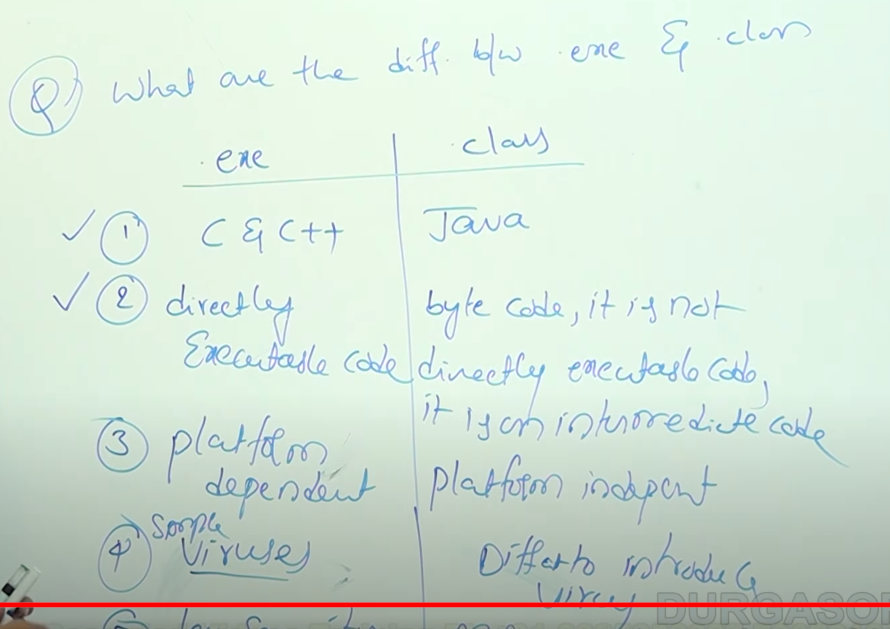 Q) What are the diff. b/w .exe & .class
.exe .class
① C & C++ Java
② directly byte code, it is not
Executable code directly executable code,
it is an intermediate code
③ platform
dependent platform indepent
④ Some
Viruses Diff to introduce
Virus
DURGASO